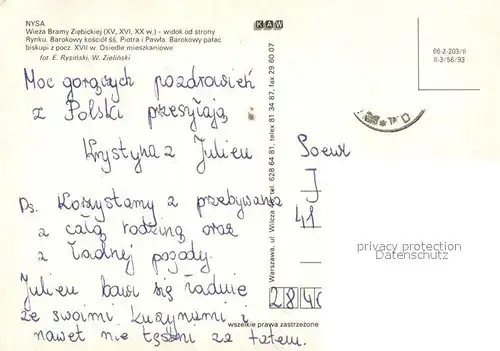 NYSA
Wieża Bramy Ziębickiej (XV, XVI, XX w.) – widok od strony
Rynku. Barokowy kościół śś. Piotra i Pawła. Barokowy pałac
biskupi z pocz. XVII w. Osiedle mieszkaniowe
fot. E. Rysiński, W. Zieliński
KAW
66-Z-203/II
II-3/56/93
Moc gorących pozdrowień
z Polski przesyłają
Krystyna z Julieu
Ps. Korzystamy z przebywania
z całą rodziną oraz
z ładnej pogody.
Julieu bawi się ładnie
ze swoimi kuzynami i
nawet nie tęskni za tatem.
Warszawa, ul. Wilcza tel. 628 64 81, telex 81 34 87, fax 29 60 07
wszelkie prawa zastrzeżone
Soeur
J
41
284
privacy protection
Datenschutz